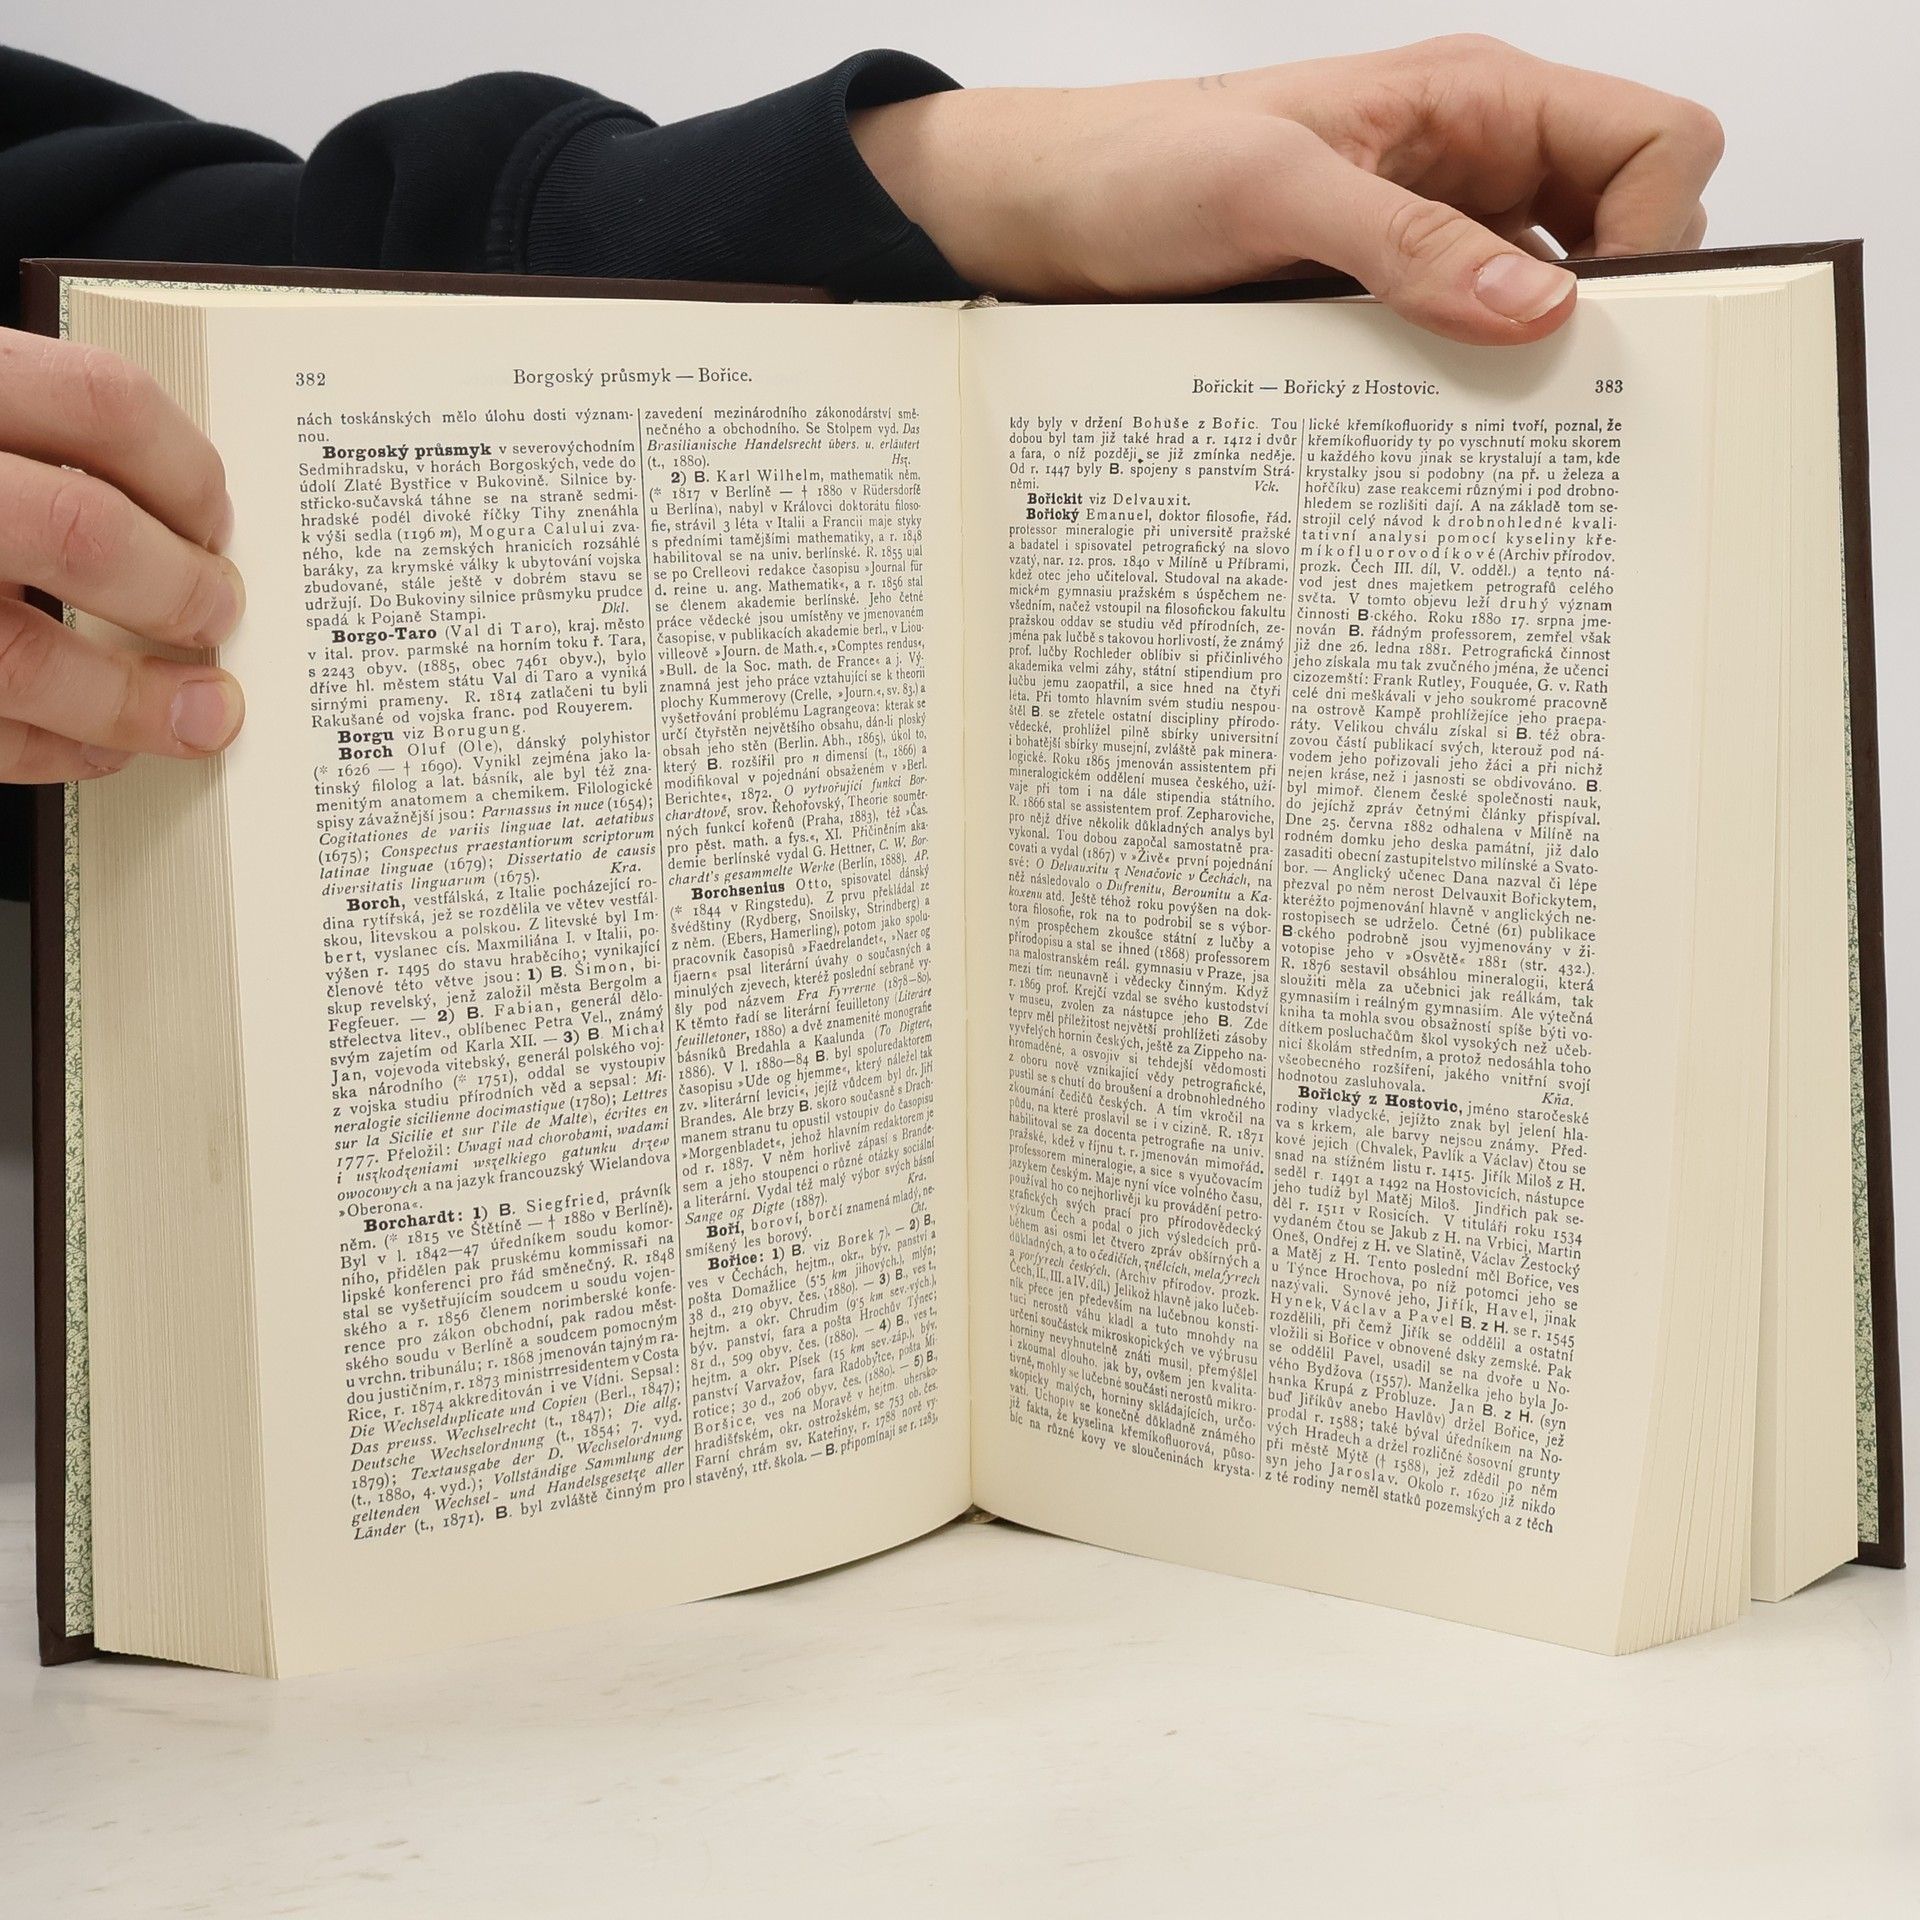 382
Borgoský průsmyk — Bořice.
nách toskánských mělo úlohu dosti význam-
nou.
Borgoský průsmyk v severovýchodním
Sedmihradsku, v horách Borgoských, vede do
údolí Zlaté Bystřice v Bukovině. Silnice by-
střicko-sučavská táhne se na straně sedmi-
hradské podél divoké říčky Tihy znenáhla
k výši sedla (1196 m), Mogura Calului zva-
ného, kde na zemských hranicích rozsáhlé
baráky, za krymské války k ubytování vojska
zbudované, stále ještě v dobrém stavu se
udržují. Do Bukoviny silnice průsmyku prudce
spadá k Pojaně Stampi. Dkl.
Borgo-Taro (Val di Taro), kraj. město
v ital. prov. parmské na horním toku ř. Tara,
s 2243 obyv. (1885, obec 7461 obyv.), bylo
dříve hl. městem státu Val di Taro a vyniká
sirnými prameny. R. 1814 zatlačeni tu byli
Rakušané od vojska franc. pod Rouyerem.
Borgu viz Borugung.
Borch Oluf (Ole), dánský polyhistor
(* 1626 — † 1690). Vynikl zejména jako la-
tinský filolog a lat. básník, ale byl též zna-
menitým anatomem a chemikem. Filologické
spisy závažnější jsou: Parnassus in nuce (1654);
Cogitationes de variis linguae lat. aetatibus
(1675); Conspectus praestantiorum scriptorum
latinae linguae (1679); Dissertatio de causis
diversitatis linguarum (1675). Kra.
Borch, vestfálská, z Italie pocházející ro-
dina rytířská, jež se rozdělila ve větev vestfál-
skou, litevskou a polskou. Z litevské byl Im-
bert, vyslanec cís. Maxmiliána I. v Italii, po-
výšen r. 1495 do stavu hraběcího; vynikající
členové této větve jsou: 1) B. Šimon, bi-
skup revelský, jenž založil města Bergolm a
Fegfeuer. — 2) B. Fabian, generál dělo-
střelectva litev., oblíbenec Petra Vel., známý
svým zajetím od Karla XII. — 3) B. Michał
Jan, vojevoda vitebský, generál polského voj-
ska národního (* 1751), oddal se vystoupiv
z vojska studiu přírodních věd a sepsal: Mi-
neralogie sicilienne docimastique (1780); Lettres
sur la Sicilie et sur l'île de Malte), écrites en
1777. Přeložil: Uwagi nad chorobami, wadami
i uszkodzeniami wszelkiego gatunku drzew
owocowych a na jazyk francouzský Wielandova
»Oberona«.
Borchardt: 1) B. Siegfried, právník
něm. (* 1815 ve Štětíně — † 1880 v Berlíně).
Byl v l. 1842—47 úředníkem soudu komor-
ního, přidělen pak pruskému kommissaři na
lipské konferenci pro řád směnečný. R. 1848
stal se vyšetřujícím soudcem u soudu vojen-
ského a r. 1856 členem norimberské konfe-
rence pro zákon obchodní, pak radou měst-
ského soudu v Berlíně a soudcem pomocným
u vrchn. tribunálu; r. 1868 jmenován tajným ra-
dou justičním, r. 1873 ministrresidentem v Costa
Rice, r. 1874 akkreditován i ve Vídni. Sepsal:
Die Wechselduplicate und Copien (Berl., 1847);
Das preuss. Wechselrecht (t., 1847); Die allg.
Deutsche Wechselordnung (t., 1854; 7. vyd.
1879); Textausgabe der D. Wechselordnung
(t., 1880, 4. vyd.); Vollständige Sammlung der
geltenden Wechsel- und Handelsgesetze aller
Länder (t., 1871). B. byl zvláště činným pro
zavedení mezinárodního zákonodárství smě-
nečného a obchodního. Se Stolpem vyd. Das
Brasilianische Handelsrecht übers. u. erläutert
(t., 1880). Hsz.
2) B. Karl Wilhelm, mathematik něm.
(* 1817 v Berlíně — † 1880 v Rüdersdorfě
u Berlína), nabyl v Královci doktorátu filoso-
fie, strávil 3 léta v Italii a Francii maje styky
s předními tamějšími mathematiky, a r. 1848
habilitoval se na univ. berlínské. R. 1855 ujal
se po Crelleovi redakce časopisu »Journal für
d. reine u. ang. Mathematik«, a r. 1856 stal
se členem akademie berlínské. Jeho četné
práce vědecké jsou umístěny ve jmenovaném
časopise, v publikacích akademie berl., v Liou-
villeově »Journ. de Math.«, »Comptes rendus«,
»Bull. de la Soc. math. de France« a j. Vý-
znamná jest jeho práce vztahující se k theorii
plochy Kummerovy (Crelle, »Journ.«, sv. 83.) a
vyšetřování problému Lagrangeova: kterak se
určí čtyřstěn největšího obsahu, dán-li ploský
obsah jeho stěn (Berlin. Abh., 1865), úkol to,
který B. rozšířil pro n dimensí (t., 1866) a
modifikoval v pojednání obsaženém v »Berl.
Berichte«, 1872. O vytvořující funkci Bor-
chardtově, srov. Řehořovský, Theorie souměr-
ných funkcí kořenů (Praha, 1883), též »Čas.
pro pěst. math. a fys.«, XI. Přičiněním aka-
demie berlínské vydal G. Hettner, C. W. Bor-
chardt's gesammelte Werke (Berlín, 1888). AP.
Borchsenius Otto, spisovatel dánský
(* 1844 v Ringstedu). Z prvu překládal ze
švédštiny (Rydberg, Snoilsky, Strindberg) a
z něm. (Ebers, Hamerling), potom jako spolu-
pracovník časopisů »Faedrelandet«, »Naer og
fjaern« psal literární úvahy o současných a
minulých zjevech, kteréž poslední sebrané vy-
šly pod názvem Fra Fyrrerne (1878—80).
K těmto řadí se literární feuilletony (Literäre
feuilletoner, 1880) a dvě znamenité monografie
básníků Bredahla a Kaalunda (To Digtere,
1886). V l. 1880—84 B. byl spoluredaktorem
časopisu »Ude og hjemme«, který náležel tak
zv. »literární levici«, jejíž vůdcem byl dr. Jiří
Brandes. Ale brzy B. skoro současně s Drach-
manem stranu tu opustil vstoupiv do časopisu
»Morgenbladet«, jehož hlavním redaktorem je
od r. 1887. V něm horlivě zápasí s Brande-
sem a jeho stoupenci o různé otázky sociální
a literární. Vydal též malý výbor svých básní
Sange og Digte (1887). Kra.
Boří, boroví, borčí znamená mladý, ne-
smíšený les borový. Cht.
Bořice: 1) B. viz Borek 7). — 2) B.,
ves v Čechách, hejtm., okr., býv. panství a
pošta Domažlice (5·5 km jihových.), mlýn;
38 d., 219 obyv. čes. (1880). — 3) B., ves t.,
hejtm. a okr. Chrudim (9·5 km sev.-vých.),
býv. panství, fara a pošta Hrochův Týnec;
81 d., 509 obyv. čes. (1880). — 4) B., ves t.,
hejtm. a okr. Písek (15 km sev.-záp.), býv.
panství Varvažov, fara Radobytce, pošta Mi-
rotice; 30 d., 206 obyv. čes. (1880). — 5) B.,
Boršice, ves na Moravě v hejtm. uhersko-
hradišťském, okr. ostrožském, se 753 ob. čes.
Farní chrám sv. Kateřiny, r. 1788 nově vy-
stavěný, 1tř. škola. — B. připomínají se r. 1283,
Bořickit — Bořický z Hostovic.
383
kdy byly v držení Bohuše z Bořic. Tou
dobou byl tam již také hrad a r. 1412 i dvůr
a fara, o níž později se již zmínka neděje.
Od r. 1447 byly B. spojeny s panstvím Strá-
němi. Vck.
Bořickit viz Delvauxit.
Bořický Emanuel, doktor filosofie, řád.
professor mineralogie při universitě pražské
a badatel i spisovatel petrografický na slovo
vzatý, nar. 12. pros. 1840 v Milíně u Příbrami,
kdež otec jeho učiteloval. Studoval na akade-
mickém gymnasiu pražském s úspěchem ne-
všedním, načež vstoupil na filosofickou fakultu
pražskou oddav se studiu věd přírodních, ze-
jména pak lučbě s takovou horlivostí, že známý
prof. lučby Rochleder oblíbiv si přičinlivého
akademika velmi záhy, státní stipendium pro
lučbu jemu zaopatřil, a sice hned na čtyři
léta. Při tomto hlavním svém studiu nespou-
štěl B. se zřetele ostatní discipliny přírodo-
vědecké, prohlížel pilně sbírky universitní
i bohatější sbírky musejní, zvláště pak minera-
logické. Roku 1865 jmenován assistentem při
mineralogickém oddělení musea českého, uží-
vaje při tom i na dále stipendia státního.
R. 1866 stal se assistentem prof. Zepharoviche,
pro nějž dříve několik důkladných analys byl
vykonal. Tou dobou započal samostatně pra-
covati a vydal (1867) v »Živě« první pojednání
své: O Delvauxitu z Nenačovic v Čechách, na
něž následovalo o Dufrenitu, Berounitu a Ka-
koxenu atd. Ještě téhož roku povýšen na dok-
tora filosofie, rok na to podrobil se s výbor-
ným prospěchem zkoušce státní z lučby a
přírodopisu a stal se ihned (1868) professorem
na malostranském reál. gymnasiu v Praze, jsa
mezi tím neunavně i vědecky činným. Když
r. 1869 prof. Krejčí vzdal se svého kustodství
v museu, zvolen za nástupce jeho B. Zde
teprv měl příležitost největší prohlížeti zásoby
vyvřelých hornin českých, ještě za Zippeho na-
hromaděné, a osvojiv si tehdejší vědomosti
z oboru nově vznikající vědy petrografické,
pustil se s chutí do broušení a drobnohledného
zkoumání čedičů českých. A tím vkročil na
půdu, na které proslavil se i v cizině. R. 1871
habilitoval se za docenta petrografie na univ.
pražské, kdež v říjnu t. r. jmenován mimořád.
professorem mineralogie, a sice s vyučovacím
jazykem českým. Maje nyní více volného času,
používal ho co nejhorlivěji ku provádění petro-
grafických svých prací pro přírodovědecký
výzkum Čech a podal o jich výsledcích prů-
během asi osmi let čtvero zpráv obšírných a
důkladných, a to o čedičích, znělcích, melafyrech
a porfyrech českých. (Archiv přírod. prozk.
Čech, II., III. a IV. díl.) Jelikož hlavně jako lučeb-
ník přece jen především na lučebnou konsti-
tuci nerostů váhu kladl a tuto mnohdy na
určení součástek mikroskopických ve výbrusu
horniny nevyhnutelně znáti musil, přemýšlel
i zkoumal dlouho, jak by, ovšem jen kvalita-
tivně, mohly se lučebné součásti nerostů mikro-
skopicky malých, horniny skládajících, určo-
vati. Uchopiv se konečně důkladně známého
již fakta, že kyselina křemíkofluorová, půso-
bíc na různé kovy ve sloučeninách krysta-
lické křemíkofluoridy s nimi tvoří, poznal, že
křemíkofluoridy ty po vyschnutí moku skorem
u každého kovu jinak se krystalují a tam, kde
krystalky jsou si podobny (na př. u železa a
hořčíku) zase reakcemi různými i pod drobno-
hledem se rozlišiti dají. A na základě tom se-
strojil celý návod k drobnohledné kvali-
tativní analysi pomocí kyseliny kře-
míkofluorovodíkové (Archiv přírodov.
prozk. Čech III. díl, V. odděl.) a tento ná-
vod jest dnes majetkem petrografů celého
světa. V tomto objevu leží druhý význam
činnosti B-ckého. Roku 1880 17. srpna jme-
nován B. řádným professorem, zemřel však
již dne 26. ledna 1881. Petrografická činnost
jeho získala mu tak zvučného jména, že učenci
cizozemští: Frank Rutley, Fouquée, G. v. Rath
celé dni meškávali v jeho soukromé pracovně
na ostrově Kampě prohlížejíce jeho praepa-
ráty. Velikou chválu získal si B. též obra-
zovou částí publikací svých, kterouž pod ná-
vodem jeho pořizovali jeho žáci a při nichž
nejen kráse, než i jasnosti se obdivováno. B.
byl mimoř. členem české společnosti nauk,
do jejíchž zpráv četnými články přispíval.
Dne 25. června 1882 odhalena v Milíně na
rodném domku jeho deska památní, již dalo
zasaditi obecní zastupitelstvo milínské a Svato-
bor. — Anglický učenec Dana nazval či lépe
přezval po něm nerost Delvauxit Bořickytem,
kteréžto pojmenování hlavně v anglických ne-
rostopisech se udrželo. Četné (61) publikace
B-ckého podrobně jsou vyjmenovány v ži-
votopise jeho v »Osvětě« 1881 (str. 432.).
R. 1876 sestavil obsáhlou mineralogii, která
sloužiti měla za učebnici jak reálkám, tak
gymnasiím i reálným gymnasiím. Ale výtečná
kniha ta mohla svou obsažností spíše býti vo-
dítkem posluchačům škol vysokých než učeb-
nicí školám středním, a protož nedosáhla toho
všeobecného rozšíření, jakého vnitřní svojí
hodnotou zasluhovala. Kňa.
Bořický z Hostovic, jméno staročeské
rodiny vladycké, jejížto znak byl jelení hla-
va s krkem, ale barvy nejsou známy. Před-
kové jejich (Chvalek, Pavlík a Václav) čtou se
snad na stížném listu r. 1415. Jiřík Miloš z H.
seděl r. 1491 a 1492 na Hostovicích, nástupce
jeho tudíž byl Matěj Miloš. Jindřich pak se-
děl r. 1511 v Rosicích. V tituláři roku 1534
vydaném čtou se Jakub z H. na Vrbici, Martin
Oneš, Ondřej z H. ve Slatině, Václav Žestocký
a Matěj z H. Tento poslední měl Bořice, ves
u Týnce Hrochova, po níž potomci jeho se
nazývali. Synové jeho, Jiřík, Havel, jinak
Hynek, Václav a Pavel B. z H. se r. 1545
rozdělili, při čemž Jiřík se oddělil a ostatní
vložili si Bořice v obnovené dsky zemské. Pak
se oddělil Pavel, usadil se na dvoře u No-
vého Bydžova (1557). Manželka jeho byla Jo-
hanka Krupá z Probluze. Jan B. z H. (syn
buď Jiříkův anebo Havlův) držel Bořice, jež
prodal r. 1588; také býval úředníkem na No-
vých Hradech a držel rozličné šosovní grunty
při městě Mýtě († 1588), jež zdědil po něm
syn jeho Jaroslav. Okolo r. 1620 již nikdo
z té rodiny neměl statků pozemských a z těch